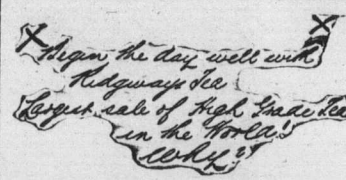 Begin the day well with
Ridgways Tea
Largest sale of High Grade Tea
in the World!
Why?